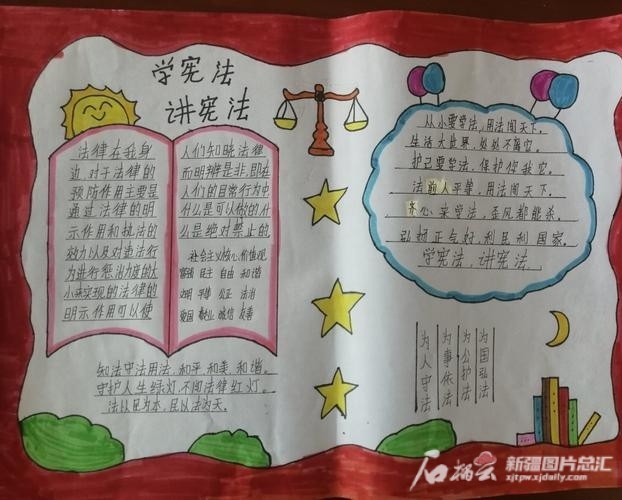 学宪法
讲宪法
法律在我身
边,对于法律的
预防作用主要是
通过法律的明
示作用和执法的
效力以及对违法行
为进行惩治力度的大
小来实现的法律的
明示作用可以使
人们知晓法律
而明辨是非,即在
人们的日常行为中
什么是可以做的什
么是绝对禁止的
社会主义核心价值观
富强 民主 自由 和谐
文明 平等 公正 法治
爱国 敬业 诚信 友善
知法守法用法,和平和美,和谐。
守护人生绿灯,不闯法律红灯。
法以民为本,民以法为天。
从小要学法,用法闯天下。
生活大世界,处处不离它。
护己要学法,保护你我它。
法前人平等,用法闯天下。
齐心来学法,歪风都能杀。
弘扬正气好,利民利国家。
学宪法,讲宪法
为人守法
为事依法
为公护法
为国弘法
石榴云
新疆图片总汇
xjtpw.xjdaily.com